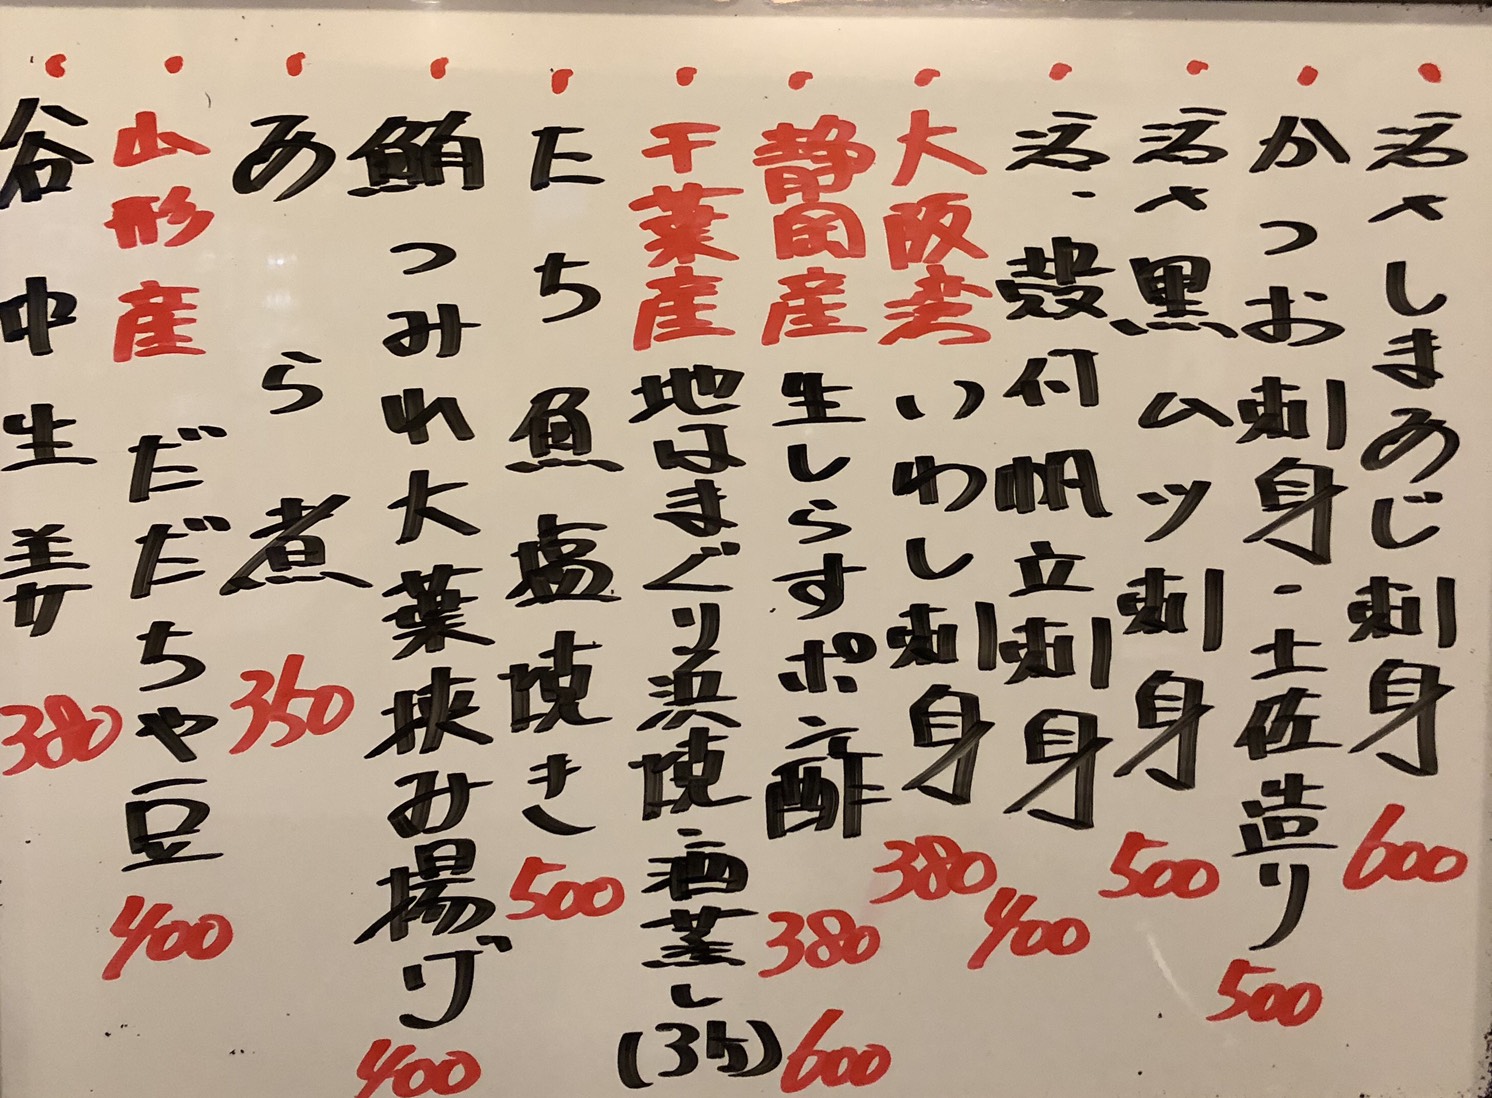 活〆しまあじ刺身 600
かつお刺身・土佐造り 500
活〆黒ムツ刺身 500
活・殻付帆立刺身 400
大阪湾いわし刺身 380
静岡産生しらすポン酢 380
千葉産地はまぐり浜焼・酒蒸し(3ケ) 600
たち魚塩焼き 500
鮹つみれ大葉挟み揚げ 400
あら煮 350
山形産だだちゃ豆 400
谷中生姜 380